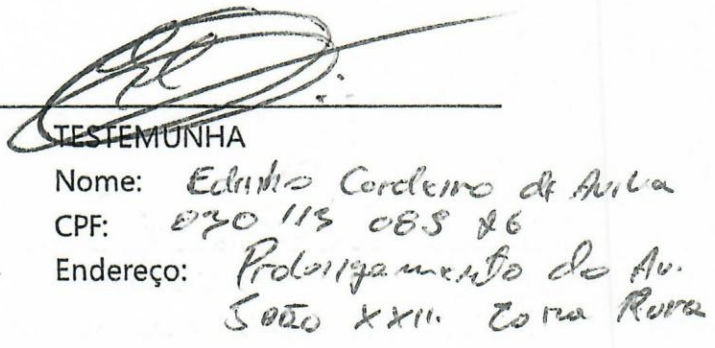 TESTEMUNHA
Nome: Cordeiro de Avila
CPF: 030 113 085 26
Endereço: Prolongamento do Av.
João XXIII. Zona Rural